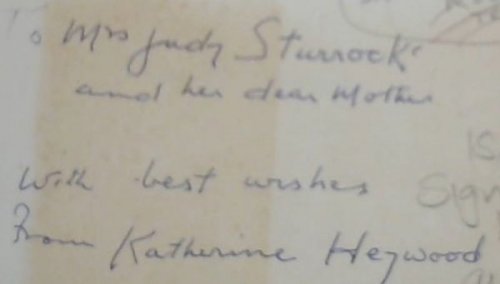 To Mrs Judy Sturrock
and her dear Mother
With best wishes
From Katherine Heywood
is
Sign